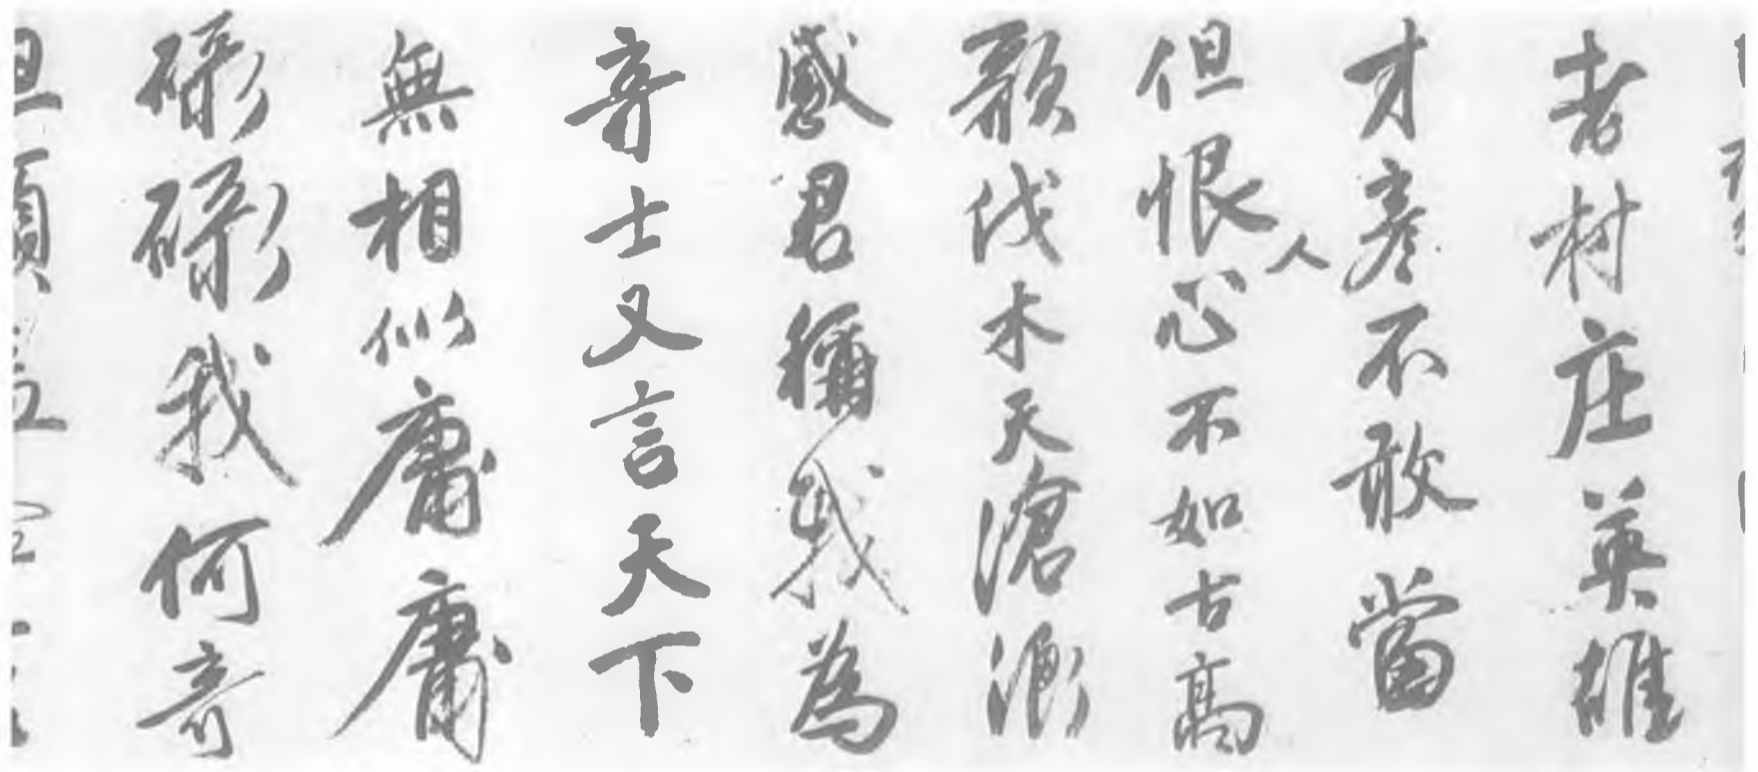 老村庄英雄
才彥不敢當
但恨人心不如古高
歌伐木天滄浪
感君稱我為
奇士又言天下
無相似庸庸
碌碌我何奇